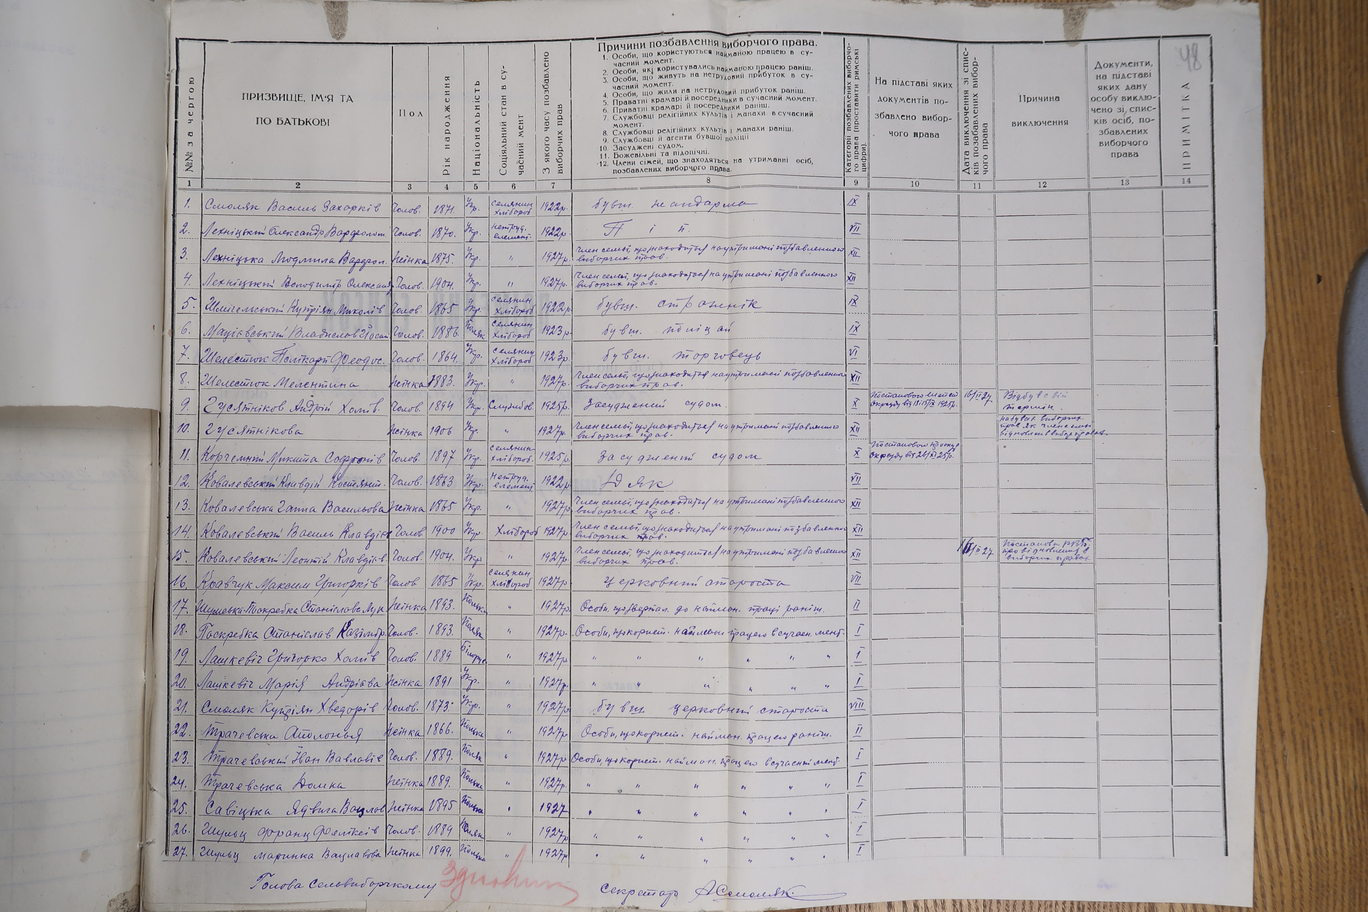 48
№№ за чергою
ПРИЗВИЩЕ, ІМ'Я ТА
ПО БАТЬКОВІ
Пол
Рік народження
Національність
Соціяльний стан в су-
часний мент
З якого часу позбавлено
виборчих прав
Причини позбавлення виборчого права.
1. Особи, що користуються найманою працею в су-
часний момент.
2. Особи, які користувались найманою працею раніш.
3. Особи, що живуть на нетрудовий прибуток в су-
часний момент.
4. Особи, що жили на нетрудовий прибуток раніш.
5. Приватні крамарі й посередники в сучасний момент.
6. Приватні крамарі й посередники раніш.
7. Службовці релігійних культів і манахи в сучасний
момент.
8. Службовці релігійних культів і манахи раніш.
9. Службовці й агенти бувшої поліції
10. Засуджені судом.
11. Божевільні та підопічні.
12. Члени сімей, що знаходяться на утриманні осіб,
позбавлених виборчого права.
Категорії позбавлених виборчо-
го права (проставити римські
цифри).
На підставі яких
документів по-
збавлено вибор-
чого права
Дата виключення зі спис-
ків позбавлених вибор-
чого права
Причина
виключення
Документи,
на підставі
яких дану
особу виклю-
чено зі спис-
ків осіб, по-
збавлених
виборчого
права
ПРИМІТКА
1 2 3 4 5 6 7 8 9 10 11 12 13 14
1. Смоляк Василь Захарків Чолов. 1871 Укр. селянин хлібороб 1922р. бувш. жандарма IX
2. Лехніцький Олександр Варфолом. Чолов. 1870. Укр. нетруд. елемент. 1922р. Піп VII
3. Лехніцька Людмила Варфол. Жінка 1875. Укр. " 1927р. Член семьї, що знаходиться на утриманні позбавленного виборчих прав XII
4. Лехніцький Володимір Олександр. Чолов. 1904. Укр. " 1927р. Член семьї, що знаходиться на утриманні позбавленного виборчих прав. XII
5. Купріян Миколів Чолов. 1865 Укр. селянин хлібороб 1922р. бувш. стражнік IX
6. Маціевський Владислав Чолов. 1886. Поляк селянин хлібороб 1923р. бувш. поліцай IX
7. Шелестюк Полікарп Феодос. Чолов. 1864. Укр. селянин хлібороб 1923р. бувш. торговець VI
8. Шелестюк Мелентина Жінка 1883. Укр. " 1927р. Член семьї, що знаходиться на утриманні позбавленного виборчих прав. XII
9. Гусятніков Андрій Чолов. 1894 Укр. Службов. 1925р. Засуджений судом X 16/II 27. Відбув свій термін.
10. Гусятнікова Жінка 1906 Укр. " 1927р. Член семьї, що знаходиться на утриманні позбавленного виборчих прав. XII
11. Корчемний Микита Софронів Чолов. 1897 Укр. селянин хлібороб. 1925р. Засуджений судом X
12. Ковалевський Клавдій Костянт. Чолов. 1873 Укр. нетруд. елемент 1922р. Дяк VII
13. Ковалевська Ганна Васильова Жінка 1865 Укр. " 1927р. Член семьї, що знаходиться на утриманні позбавленного виборчих прав. XII
14. Ковалевський Василь Клавдієв Чолов. 1900 Укр. Хлібороб 1927р. Член семьї, що знаходиться на утриманні позбавленного виборчих прав. XII
15. Ковалевський Леонтій Клавдіев. Чолов. 1904. Укр. " 1927р. Член семьї, що знаходиться на утриманні позбавленного виборчих прав. XII
16. Кравчук Максим Григорків Чолов. 1865 Укр. селянин хлібороб 1927р. Церковний староста VII
17. Поскребка Станіслава Жінка 1893. Полька " 1927р. II
18. Поскребка Станіслав Казімір. Чолов. 1893. Поляк " 1927р. Особи, що корист. найман. працею в сучасн. мент. I
19. Лашкевіч Григорко Чолов. 1889 " 1927р. " " " " " " I
20. Лашкевіч Марія Андріева Жінка 1891 Укр. " 1927р. " " " " " " I
21. Смоляк Купріян Хведорів Чолов. 1873. Укр. " 1927р. бувш. церковний староста VIII
22. Трачевська Аполонья Жінка 1866. Полька " 1927р. Особи, що корист. найман. працею раніш. II
23. Трачевський Іван Чолов. 1889. Поляк " 1927р. Особи, що корист. найман. працею в сучасний мент I
24. Трачевська Домка Жінка 1889. Полька " 1927р. " " " " " " I
25. Савіцька Ядвига Вацлов. Жінка 1895 Полька " 1927 " " " " " " I
26. Шульц Франц Феліксів Чолов. 1889 Поляк " 1927р. " " " " " " I
27. Шульц Маринка Вацлавова Жінка 1899. Полька " 1927р. " " " " " " I
Голова Сельвиборчкому Секретарь А Смоляк.